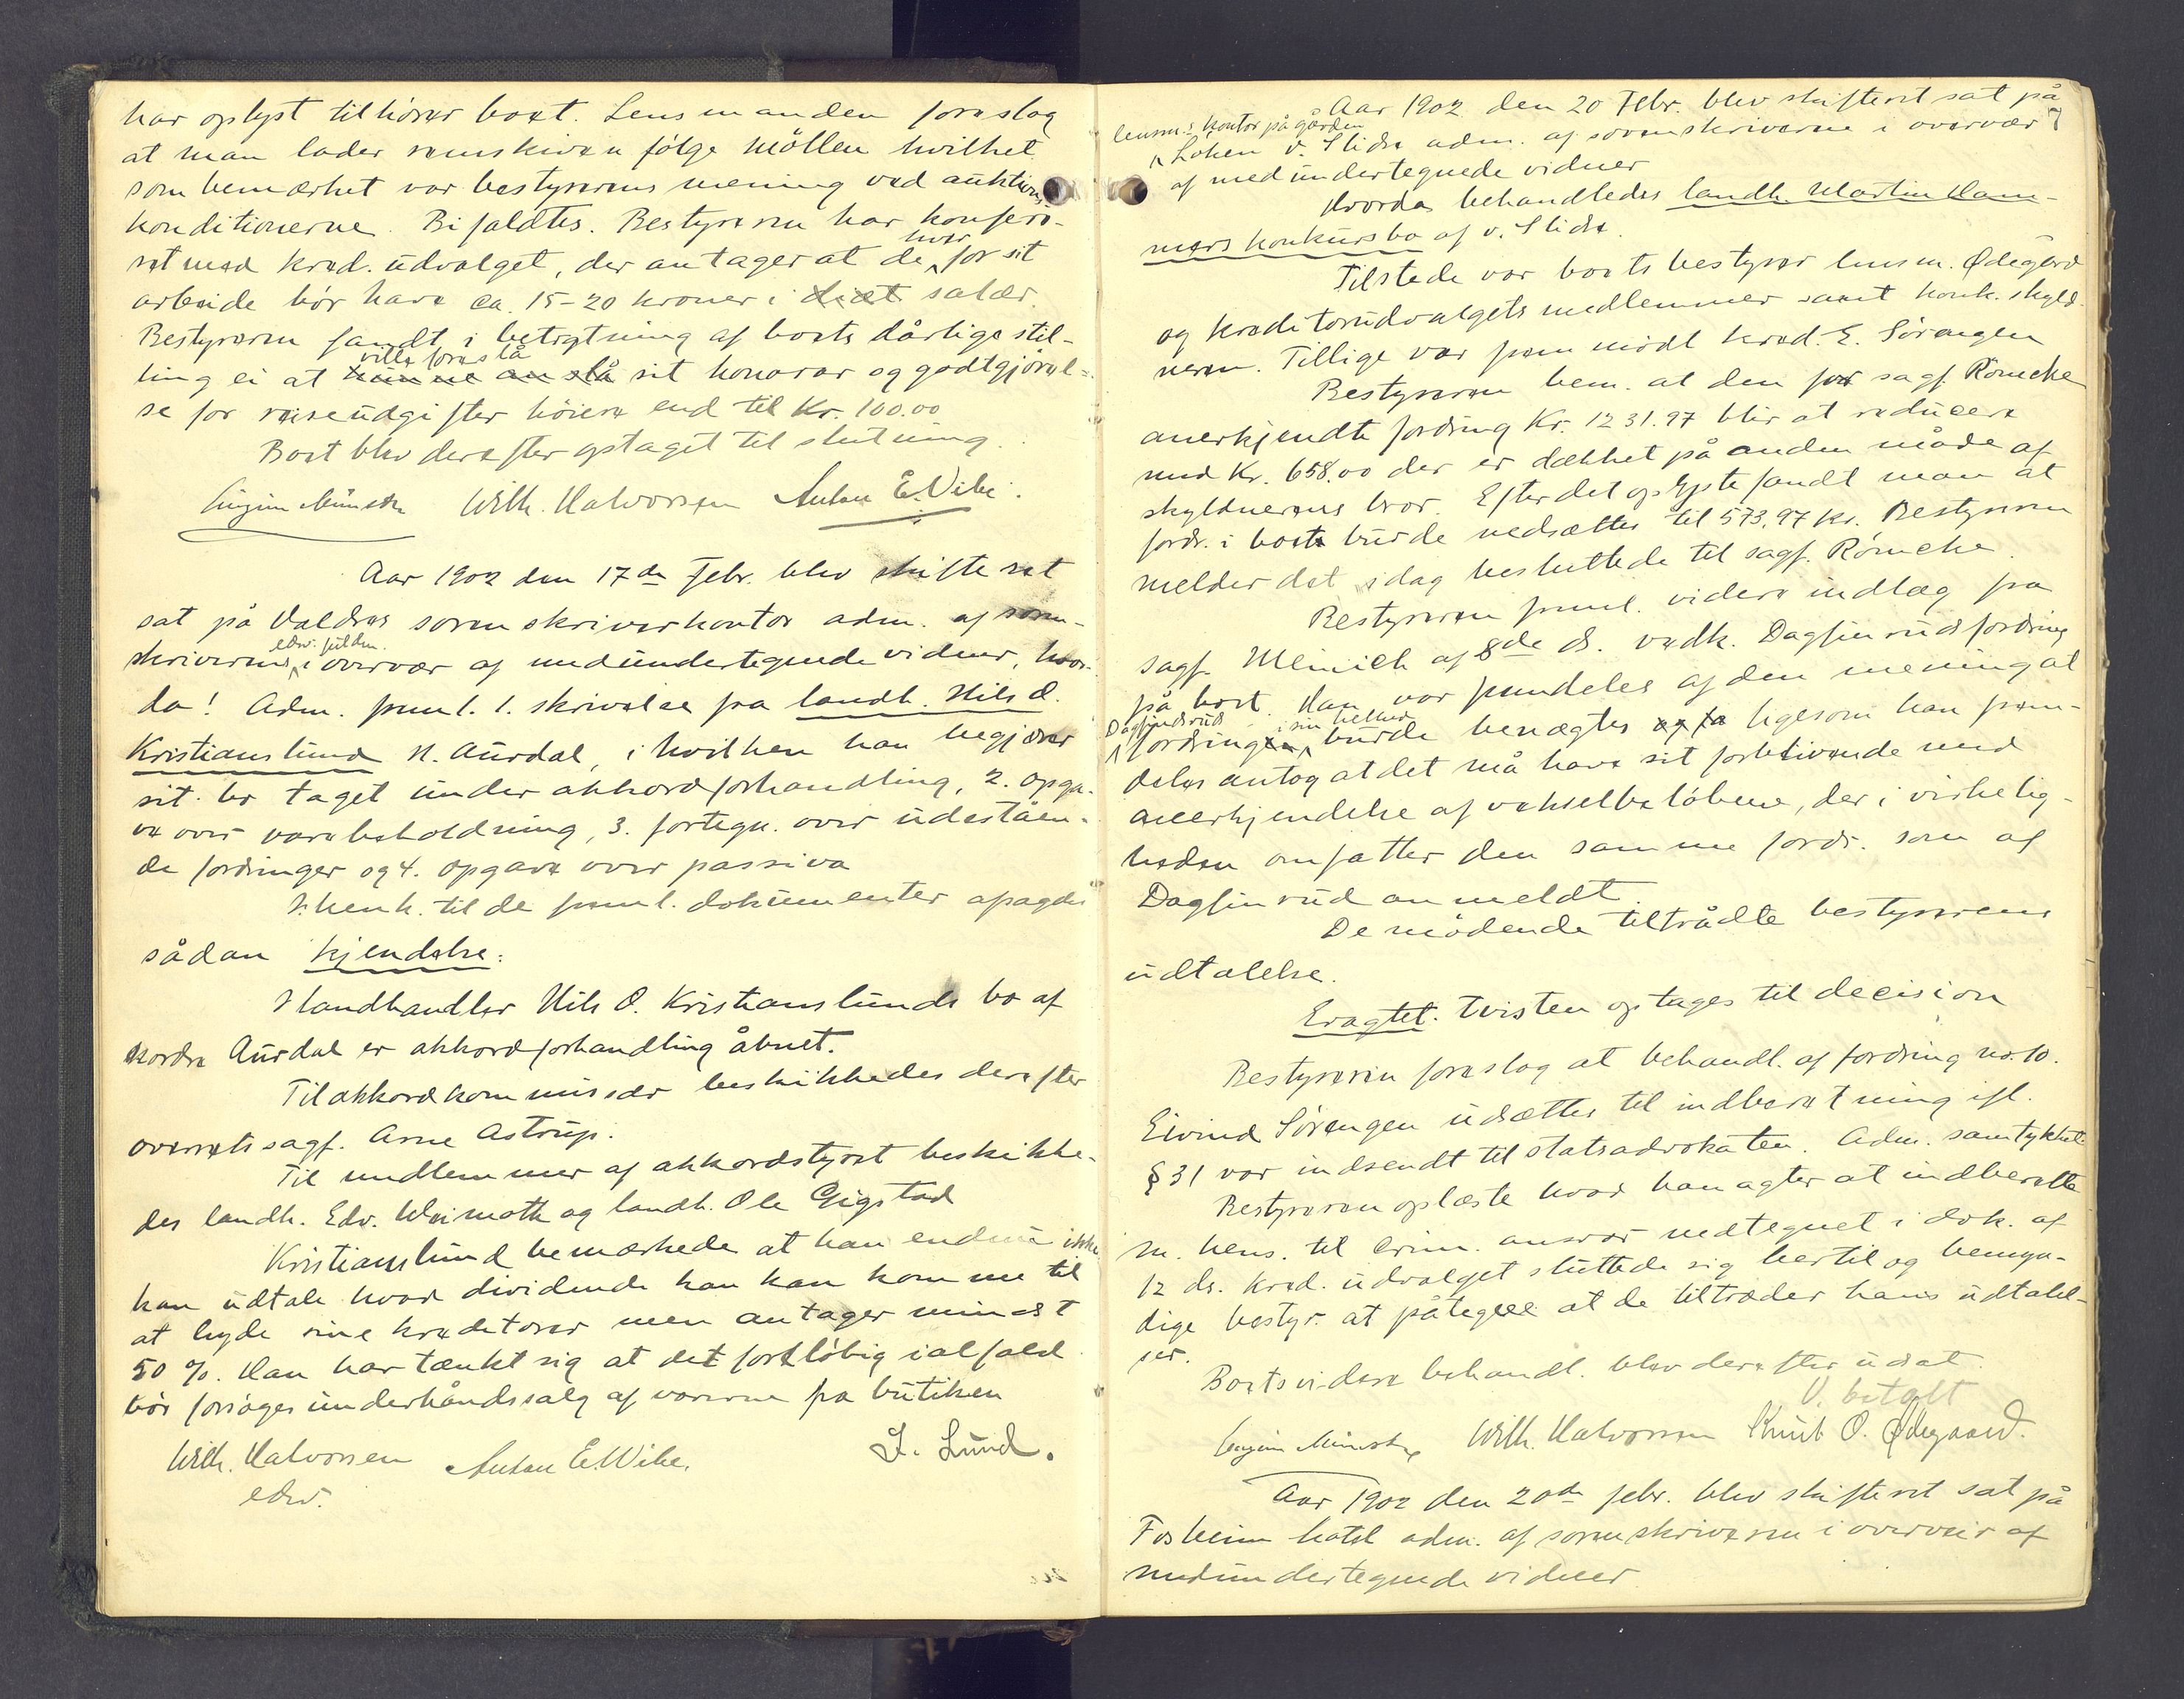 har oplyst tilhører boet. Lensmanden foreslog
at man lader remskiven følge møllen hvilket
som bemærket var bestyrerens mening ved auktions
konditionerne. Bifaldtes. Bestyreren har konfere-
ret med kred. udvalget, der antager at de hver for sit
arbeide bør have ca. 15-20 kroner i diæt salær.
Bestyreren fandt i betragtning af boets dårlige stil-
ling ei at kunne anslå ville foreslå sit honorar og godtgjørel-
se for reiseudgifter høiere end til Kr. 100.00
Boet blev derefter optaget til slutning.
Wilh. Halvorsen Anton E. Vibe.
Aar 1902 den 17de Febr. blev skifteret
sat på Valdres sorenskriverkontor adm. af soren-
skriverens edsv. fuldm. i overvær af medundertegnede vidner, hvor-
da! Adm. freml. 1. skrivelse fra landh. Nils O.
Kristianslund N. Aurdal, i hvilken han begjærer
sit bo taget under akkordforhandling, 2. opga-
ve over varebeholdning, 3. fortegn. over udeståen-
de fordringer og 4. opgave over passiva
I henh. til de freml. dokumenter afsagdes
sådan kjendelse:
I landhandler Nils O. Kristianslunds bo af
Nordre Aurdal er akkordforhandling åbnet.
Til akkordkommissær beskikkedes derefter
overretssagf. Arne Astrup.
Til medlemmer af akkordstyret beskikke-
des landh. Edv. Weimoth og landh. Ole Gigstad
Kristianslund bemærkede at han endnu ikke
kan udtale hvad dividende han kan komme til
at byde sine kreditorer men antager mindst
50 %. Han har tænkt sig at det foreløbig ialfald
bør forsøges underhåndssalg af varerne fra butiken
Wilh. Halvorsen Anton E. Vibe. J. Lund.
edsv.
7
Aar 1902 den 20 Febr. blev skifteret sat på
lensm.s kontor på gården
Loken v. Slidre adm. af sorenskriveren i overvær
af medundertegnede vidner
Hvorda behandledes landh. Martin Ham-
mers konkursbo af v. Slidre.
Tilstede var boets bestyrer lensm. Ødegård
og kreditorudvalgets medlemmer samt konk. skyld-
neren. Tillige var fremmødt kred. E. Sørengen
Bestyreren bem. at den for sagf. Römcke
anerkjendte fordring Kr. 1231.97 blir at reducere
med Kr. 658.00 der er dækket på anden måde af
skyldnerens bror. Efter det oplyste fandt man at
fordr. i boet burde nedsættes til 573,97 kr. Bestyreren
melder det idag besluttede til sagf. Römcke.
Bestyreren freml. videre indlæg fra
sagf. Meinich af 8de ds. vedk. Dagfinruds fordring
på boet. Han var fremdeles af den mening at
Dagfindruds fordringen i sin helhed burde benægtes og fa ligesom han frem-
deles antog at det må have sit forblivende med
anerkjendelse af vekselbeløbene, der i virkelig-
heden omfatter den samme fordr. som af
Dagfinrud anmeldt.
De mødende tiltrådte bestyrerens
udtalelse.
Eragtet. Tvisten optages til decision
Bestyreren foreslog at behandl. af fordring no. 10.
Eivind Sørengen udsættes til indberetning ifl.
§ 31 var indsendt til statsadvokaten. Adm. samtykket
Bestyreren oplæste hvad han agter at indberette
m. hens. til crim. ansvar nedtegnet i dok. af
12 ds. Kred. udvalget sluttede sig hertil og bemyn-
dige bestyr. at påtegne at de tiltræder hans udtalel-
ser.
Boets videre behandl. blev derefter udsat.
V. betalt
Wilh. Halvorsen Knut O. Ødegaard.
Aar 1902 den 20de febr. blev skifteret sat på
Fosheim hotel adm. af sorenskriveren i overvær af
medundertegnede vidner